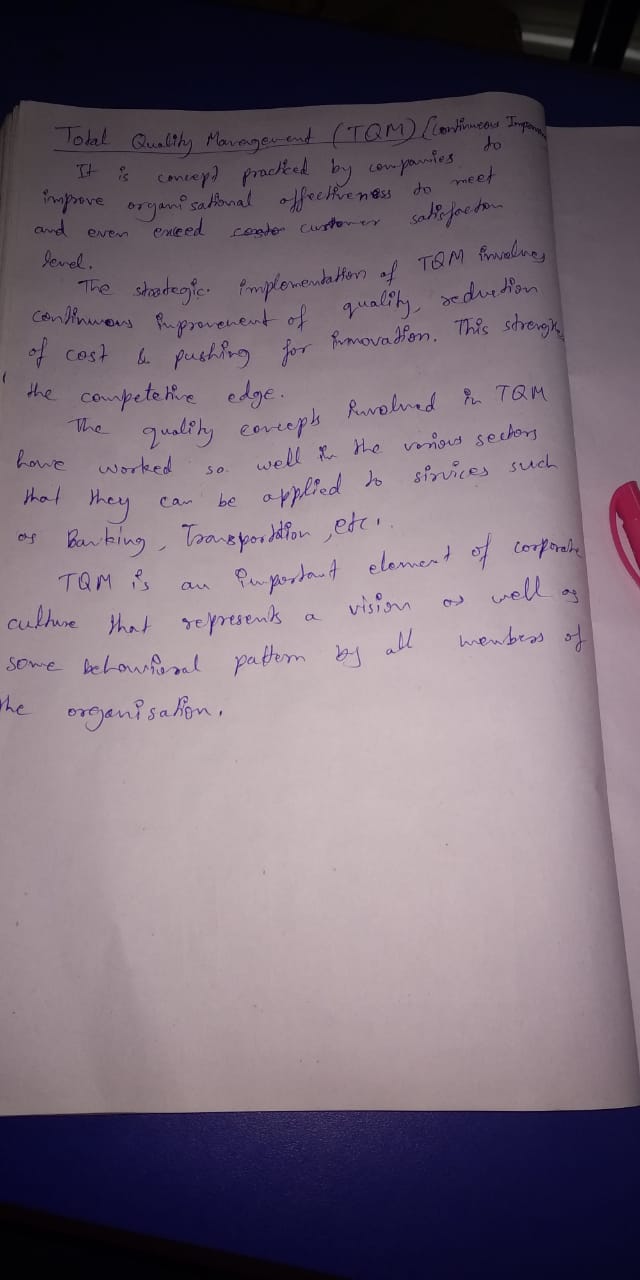 Total Quality Management (TQM) (Continuous
It is concept practiced by companies to
improve organisational affectiveness to meet
and even exceed customer satisfaction
level.
The strategic implementation of TQM involves
continuous improvement of quality, reduction
of cost & pushing for innovation. This
the competetive edge.
The quality concepts involved in TQM
have worked so well in the various sectors
that they can be applied to sirvices such
as Banking, Transportation, etc.
TQM is an important element of corporate
culture that represents a vision as well as
some behaviioral pattern by all members of
the organisation.